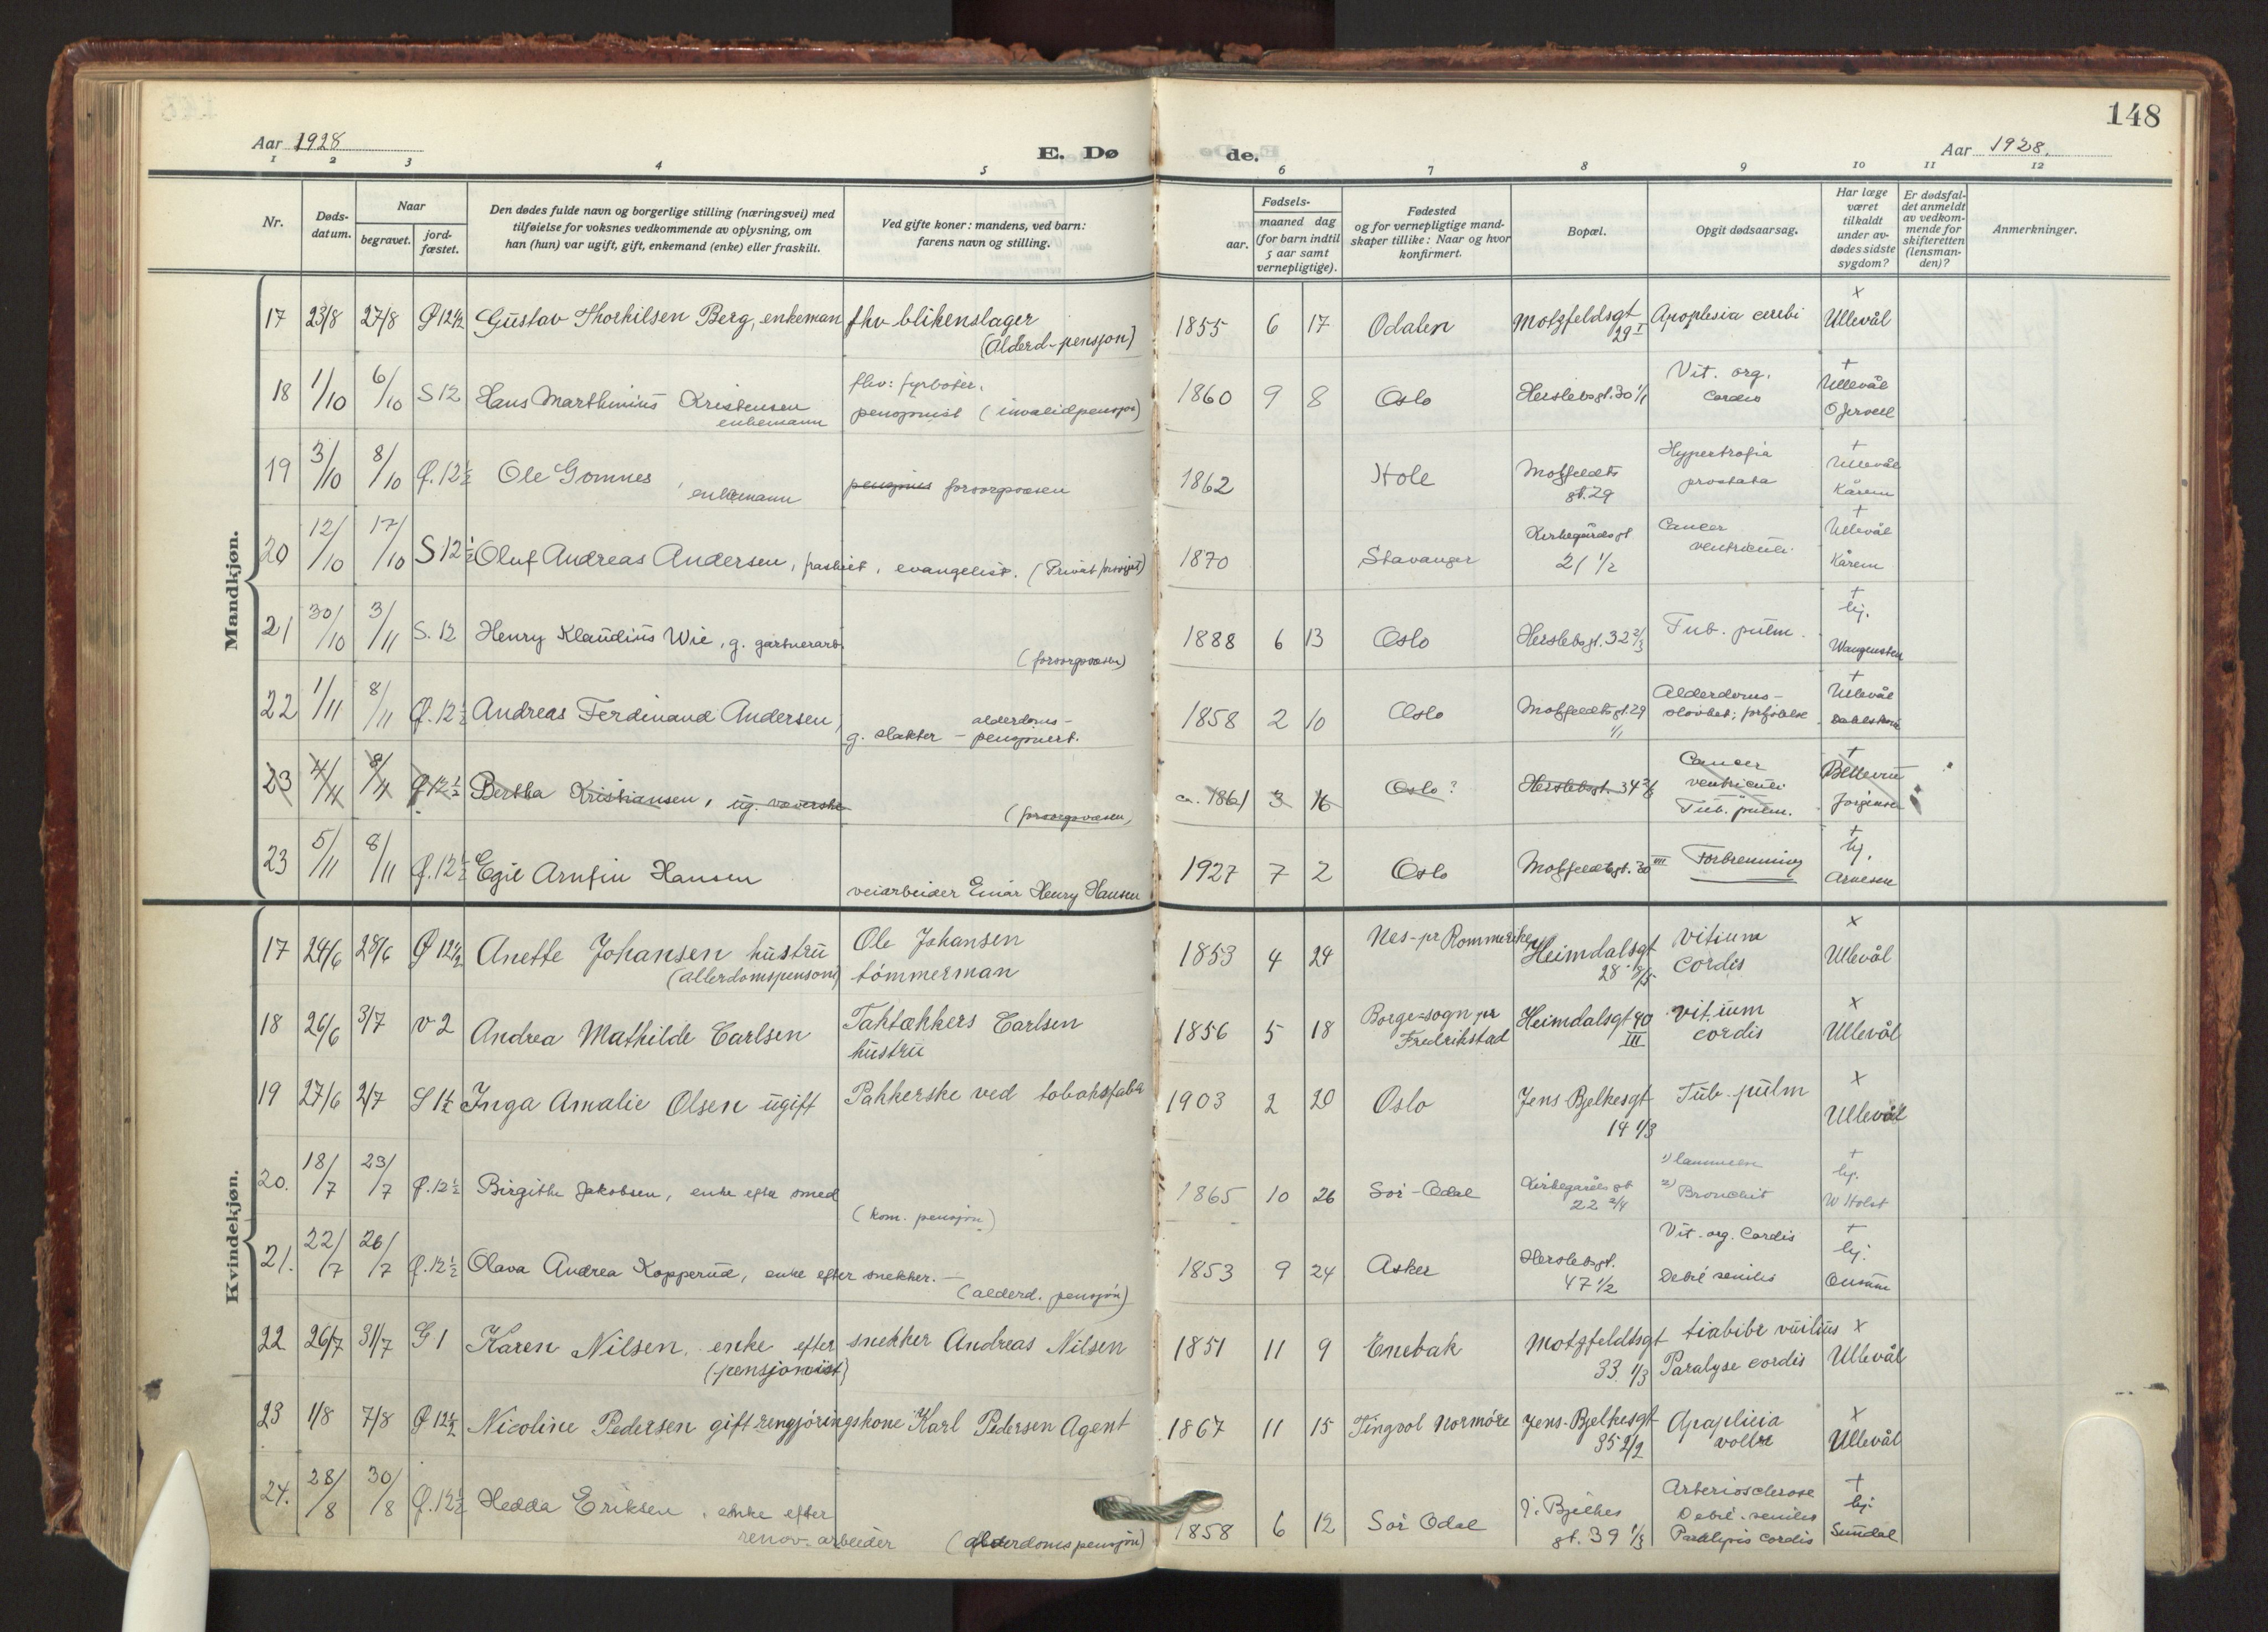 148
Aar 1928
E. Dø
de.
Aar 1928.
1 2 3 4 5 6 7 8 9 10 11 12
Nr.
Døds-
datum.
Naar
begravet.
jord-
fæstet.
Den dødes fulde navn og borgerlige stilling (næringsvei) med
tilføielse for voksnes vedkommende av oplysning, om
han (hun) var ugift, gift, enkemand (enke) eller fraskilt.
Ved gifte koner: mandens, ved barn:
farens navn og stilling.
Fødsels-
aar.
maaned dag
(for barn indtil
5 aar samt
vernepligtige).
Fødested
og for vernepligtige mand-
skaper tillike: Naar og hvor
konfirmert.
Bopæl.
Opgit dødsaarsag.
Har læge
været
tilkaldt
under av-
dødes sidste
sygdom?
Er dødsfal-
det anmeldt
av vedkom-
mende for
skifteretten
(lensman-
den)?
Anmerkninger.
Mandkjøn.
17 23/8 27/8 Ø 12½ Gustav Thorkilsen Berg, enkeman fhv blikenslager 1855 6 17 Odalen Motzfeldsgt Apoplesia cerebi x Ullevål
(Alderd-pensjon) 29 I
18 1/10 6/10 S 12 Hans Marthinius Kristensen fhv: fyrbøter. 1860 9 8 Oslo Herslebsgt. 30 1/1 Vit. org. + Ullevål
enkemann pensjonist (invalidpensjon) cordis
19 3/10 8/10 Ø. 12½ Ole Gomnes pensjonis forsorgsvæsen 1862 Hole Motzfeldts Hypertrofia + Ullevål
enkemann gt. 29 prostata Kårem
20 12/10 17/10 S 12½ Oluf Andreas Andersen, fraskilt, evangelist. 1870 Stavanger Kirkegårdsgt Cancer + Ullevål
21 1/2 ventriculi. Kårem
21 30/10 3/11 S. 12 Henry Klaudius Wie, g. gartnerarb. 1888 6 13 Oslo Herslebsgt. 32 2/3 Tub. pulm. + hj.
(forsorgsvæsen) Wangensten
22 1/11 8/11 Ø. 12½ Andreas Ferdinand Andersen, alderdoms- 1858 2 10 Oslo Motzfeldtsgt. 29 Alderdoms- + Ullevål
g. slakter - pensjonert. 1/1 sløvhet;
23 4/11 8/11 Ø 12½ Bertha Kristiansen, ug. væverske ca. 1861 3 16 Oslo? Herslebsgt. 34 Cancer +
(forsorgsvæsen) ventriculi
Tub. pulm. Jørgensen
23 5/11 8/11 Ø. 12½ Egil Arnfin Hansen 1927 7 2 Oslo Motzfeldtsgt. 30 VII Forbrenning + hj.
veiarbeider Einar Henry Hansen Arnesen
Kvindekjøn.
17 24/6 28/6 Ø 12½ Anette Johansen hustru Ole Johansen 1853 4 24 Nes-pr Rommerike Heimdalsgt Vitium x
(allerdomspensjon) tømmerman 28 cordis Ullevål
18 26/6 3/7 V 2 Andrea Mathilde Carlsen Taktækkers Carlsen 1856 5 18 Borge-sogn pr Heimdalsgt 40 vitium x
hustru Fredrikstad III cordis Ullevål
19 27/6 2/7 S 1½ Inga Amalie Olsen ugift Pakkerske ved tobaksfabr 1903 2 20 Oslo Jens-Bjelkesgt Tub. pulm x
14 1/3 Ullevål
20. 18/7 23/7 Ø. 12½ Birgithe Jakobsen, enke efter smed 1865 10 26 Sør-Odal Kirkegårdsgt + hj.
(kom. pensjon) 22 2/4 2) Bronchit W Holst
21. 22/7 26/7 Ø. 12½ Olava Andrea Kopperud, enke efter snekker. 1853 9 24 Asker Herslebsgt. Vit. org. Cordis + hj.
(alderd. pensjon) 47 1/2 Debil senilis Ousum
22 26/7 31/7 G 1 Karen Nilsen, enke efter snekker Andreas Nilsen 1851 11 9 Enebak Motzfeldtsgt x
(pensjonist) 33 1/3 Paralyse cordis Ullevål
23 1/8 7/8 Ø 12½ Nicoline Pedersen gift rengjøringskone Karl Pedersen Agent 1867 11 15 Tingvol Normøre Jens-Bjelkesgt x
35 2/2 Ullevål
24. 28/8 30/8 Ø. 12½ Hedda Eriksen, enke efter 1858 6 12 Sør Odal J. Bjelkes Arteriosclerose + hj.
renov. arbeider (alderdomspensjon) gt. 39 1/3 Debil. senilis
Paralysis cordis Sundal